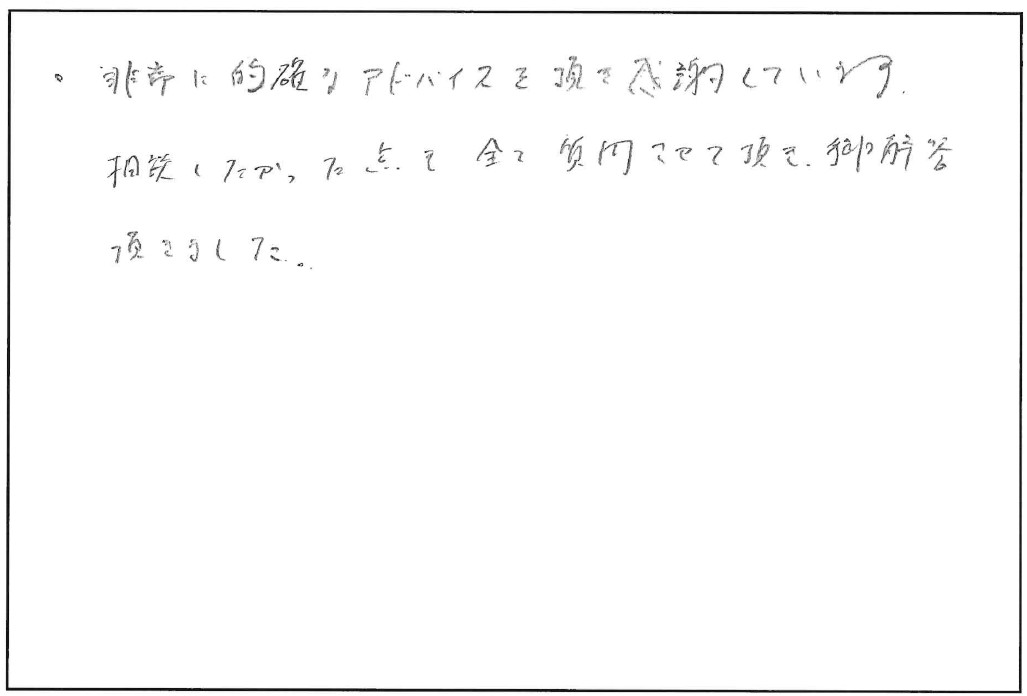 。非常に的確なアドバイスを頂き感謝しています。
相談したかった点を全て質問させて頂き、御解答
頂きました。